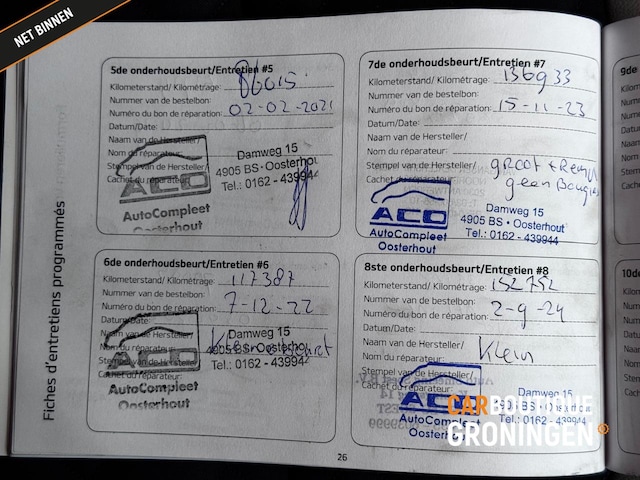 NET BINNEN
Fiches d'entretiens programmés
5de onderhoudsbeurt/Entretien #5
Kilometerstand/ Kilométrage: 86015
Nummer van de bestelbon:
Numéro du bon de réparation: 02-02-2021
Datum/Date:
Naam van de Hersteller/
Nom du réparateur:
Stempel van de Hersteller/
Cachet du réparateur:
ACO
AutoCompleet
Oosterhout
Damweg 15
4905 BS • Oosterhout
Tel.: 0162 - 439944
6de onderhoudsbeurt/Entretien #6
Kilometerstand/ Kilométrage: 117387
Nummer van de bestelbon:
Numéro du bon de réparation: 7-12-22
Datum/Date:
Naam van de Hersteller/
Nom du réparateur:
Stempel van de Hersteller/
Cachet du réparateur:
ACO
AutoCompleet
Oosterhout
Damweg 15
4905 BS • Oosterhout
Tel.: 0162 - 439944
7de onderhoudsbeurt/Entretien #7
Kilometerstand/ Kilométrage: 136933
Nummer van de bestelbon:
Numéro du bon de réparation: 15-11-23
Datum/Date:
Naam van de Hersteller/
Nom du réparateur:
Stempel van de Hersteller/ groot +
Cachet du réparateur: geen Bougies
ACO
AutoCompleet
Oosterhout
Damweg 15
4905 BS • Oosterhout
Tel.: 0162 - 439944
8ste onderhoudsbeurt/Entretien #8
Kilometerstand/ Kilométrage: 152752
Nummer van de bestelbon:
Numéro du bon de réparation: 2-9-24
Datum/Date:
Naam van de Hersteller/ Klein
Nom du réparateur:
Stempel van de Hersteller/
Cachet du réparateur:
ACO
AutoCompleet
Oosterhout
Damweg 15
4905 BS • Oosterhout
Tel.: 0162 - 439944
9de
10de
26
CARBOUTIQUE
GRONINGEN